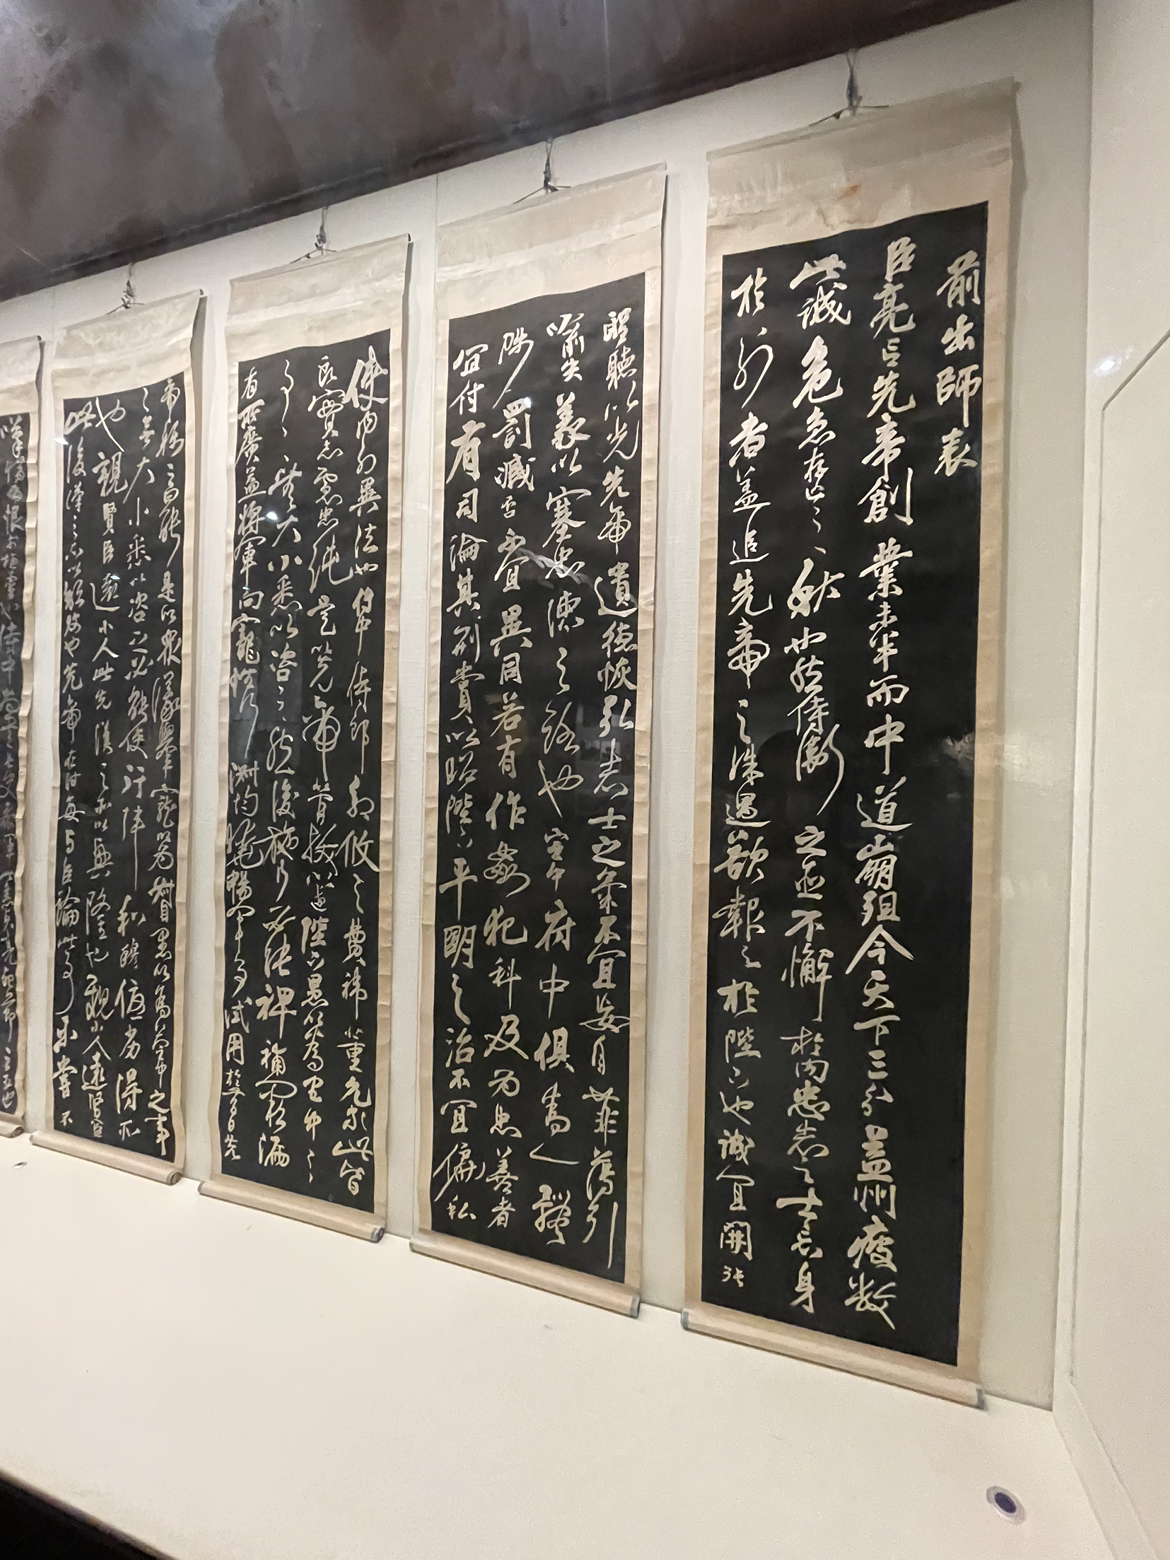 前出師表
臣亮言先帝創業未半而中道崩殂今天下三分益州疲敝
此誠危急存亡之秋也然侍衛之臣不懈於內忠志之士忘身
於外者蓋追先帝之殊遇欲報之於陛下也誠宜開張
聖聽以光先帝遺德恢弘志士之氣不宜妄自菲薄引
喻失義以塞忠諫之路也宮中府中俱為一體
陟罰臧否不宜異同若有作姦犯科及為忠善者
宜付有司論其刑賞以昭陛下平明之治不宜偏私
使內外異法也侍中侍郎郭攸之費禕董允等此皆
良實志慮忠純是以先帝簡拔以遺陛下愚以為宮中之
事事無大小悉以咨之然後施行必得裨補闕漏
有所廣益將軍向寵性行淑均曉暢軍事試用於昔日先
帝稱之曰能是以眾議舉寵以為督愚以為營中之事
事無大小悉以咨之必能使行陣和穆優劣得所
也親賢臣遠小人此先漢之所以興隆也親小人遠賢臣
此後漢之所以傾頹也先帝在時每與臣論此事未嘗不
歎息痛恨於桓靈也侍中尚書